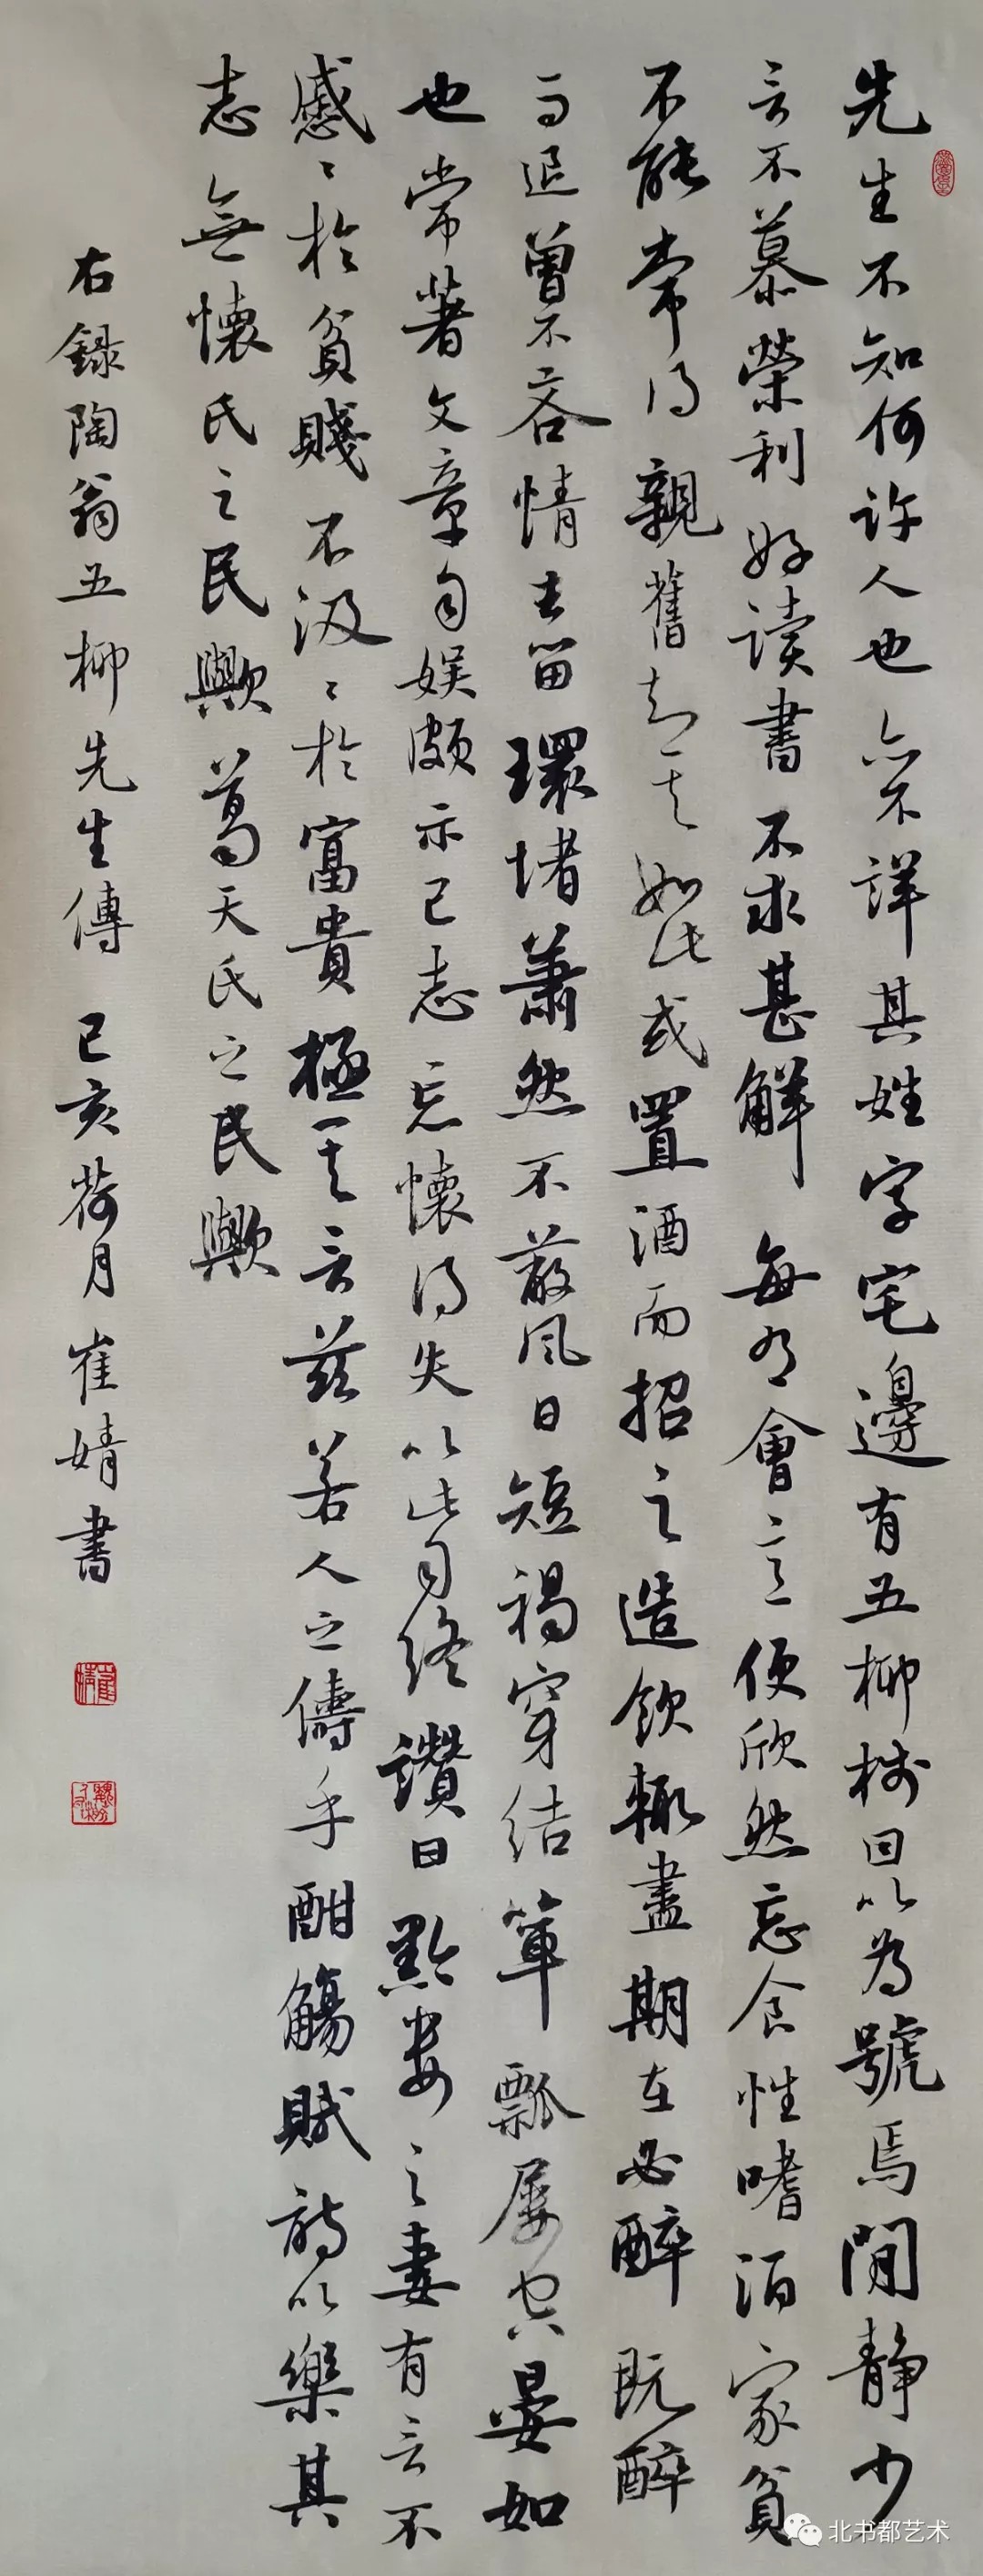 先生不知何許人也亦不詳其姓字宅邊有五柳樹因以為號焉閒靜少
言不慕榮利好讀書不求甚解每有會意便欣然忘食性嗜酒家貧
不能常得親舊知其如此或置酒而招之造飲輒盡期在必醉既醉
而退曾不吝情去留環堵蕭然不蔽風日短褐穿結簞瓢屢空晏如
也常著文章自娛頗示己志忘懷得失以此自終讚曰黔婁之妻有言不
慼々於貧賤不汲々於富貴極其言茲若人之儔乎酣觴賦詩以樂其
志無懷氏之民歟葛天氏之民歟
右錄陶翁五柳先生傳己亥荷月崔婧書
北书都艺术